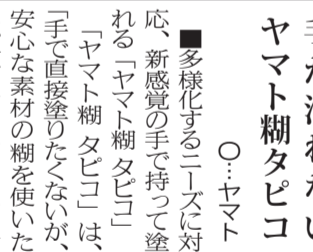 手が汚れない
ヤマト糊タピコ
〇…ヤマト
■多様化するニーズに対
応、新感覚の手で持って塗
れる「ヤマト糊 タピコ」
「ヤマト糊 タピコ」は、
「手で直接塗りたくないが、
安心な素材の糊を使いた